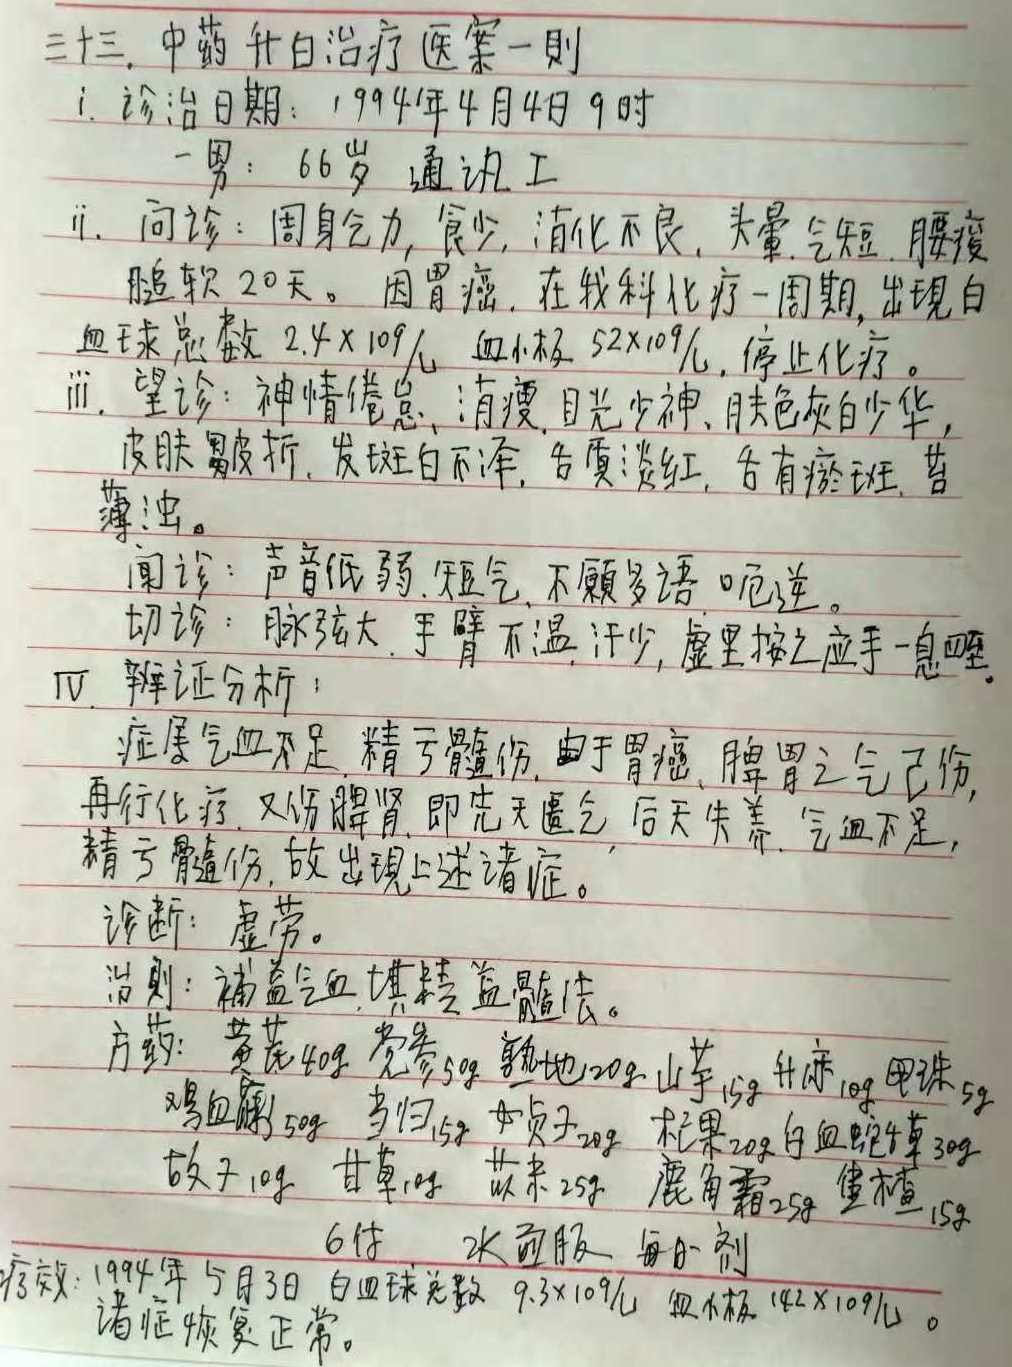 三十三. 中药升白治疗医案一則
i. 诊治日期: 1994年4月4日9时
一男: 66岁 通讯工
ii. 问诊: 周身乏力, 食少, 消化不良、头暈、气短、腰痠
腿软20天。因胃癌、在我科化疗一周期, 出現白
血球总数 2.4×109/L 血小板 52×109/L, 停止化疗。
iii. 望诊: 神情倦怠、消瘦、目光少神、肤色灰白少华,
皮肤皺折、发斑白不泽, 舌質淡红, 舌有瘀斑、苔
薄浊。
闻诊: 声音低弱、短气、不願多语、呃逆。
切诊: 脉弦大、手臂不温, 汗少, 虚里按之应手一息四至。
IV. 辨证分析:
症属气血不足、精亏髓伤, 由于胃癌、脾胃之气已伤,
再行化疗、又伤脾肾, 即先天匮乏, 后天失养、气血不足,
精亏髓伤, 故出現上述诸症。
诊断: 虚劳。
治則: 補益气血、填精益髓法。
方药: 黄芪40g 党参50g 熟地20g 山芋15g 升麻10g 甲珠5g
鸡血藤50g 当归15g 女贞子20g 杞果20g 白血蛇草30g
故子10g 甘草10g 苡米25g 鹿角霜25g 焦楂15g
6付 水煎服 每日一剂
疗效: 1994年5月3日 白血球总数 9.3×109/L 血小板 142×109/L。
诸症恢复正常。